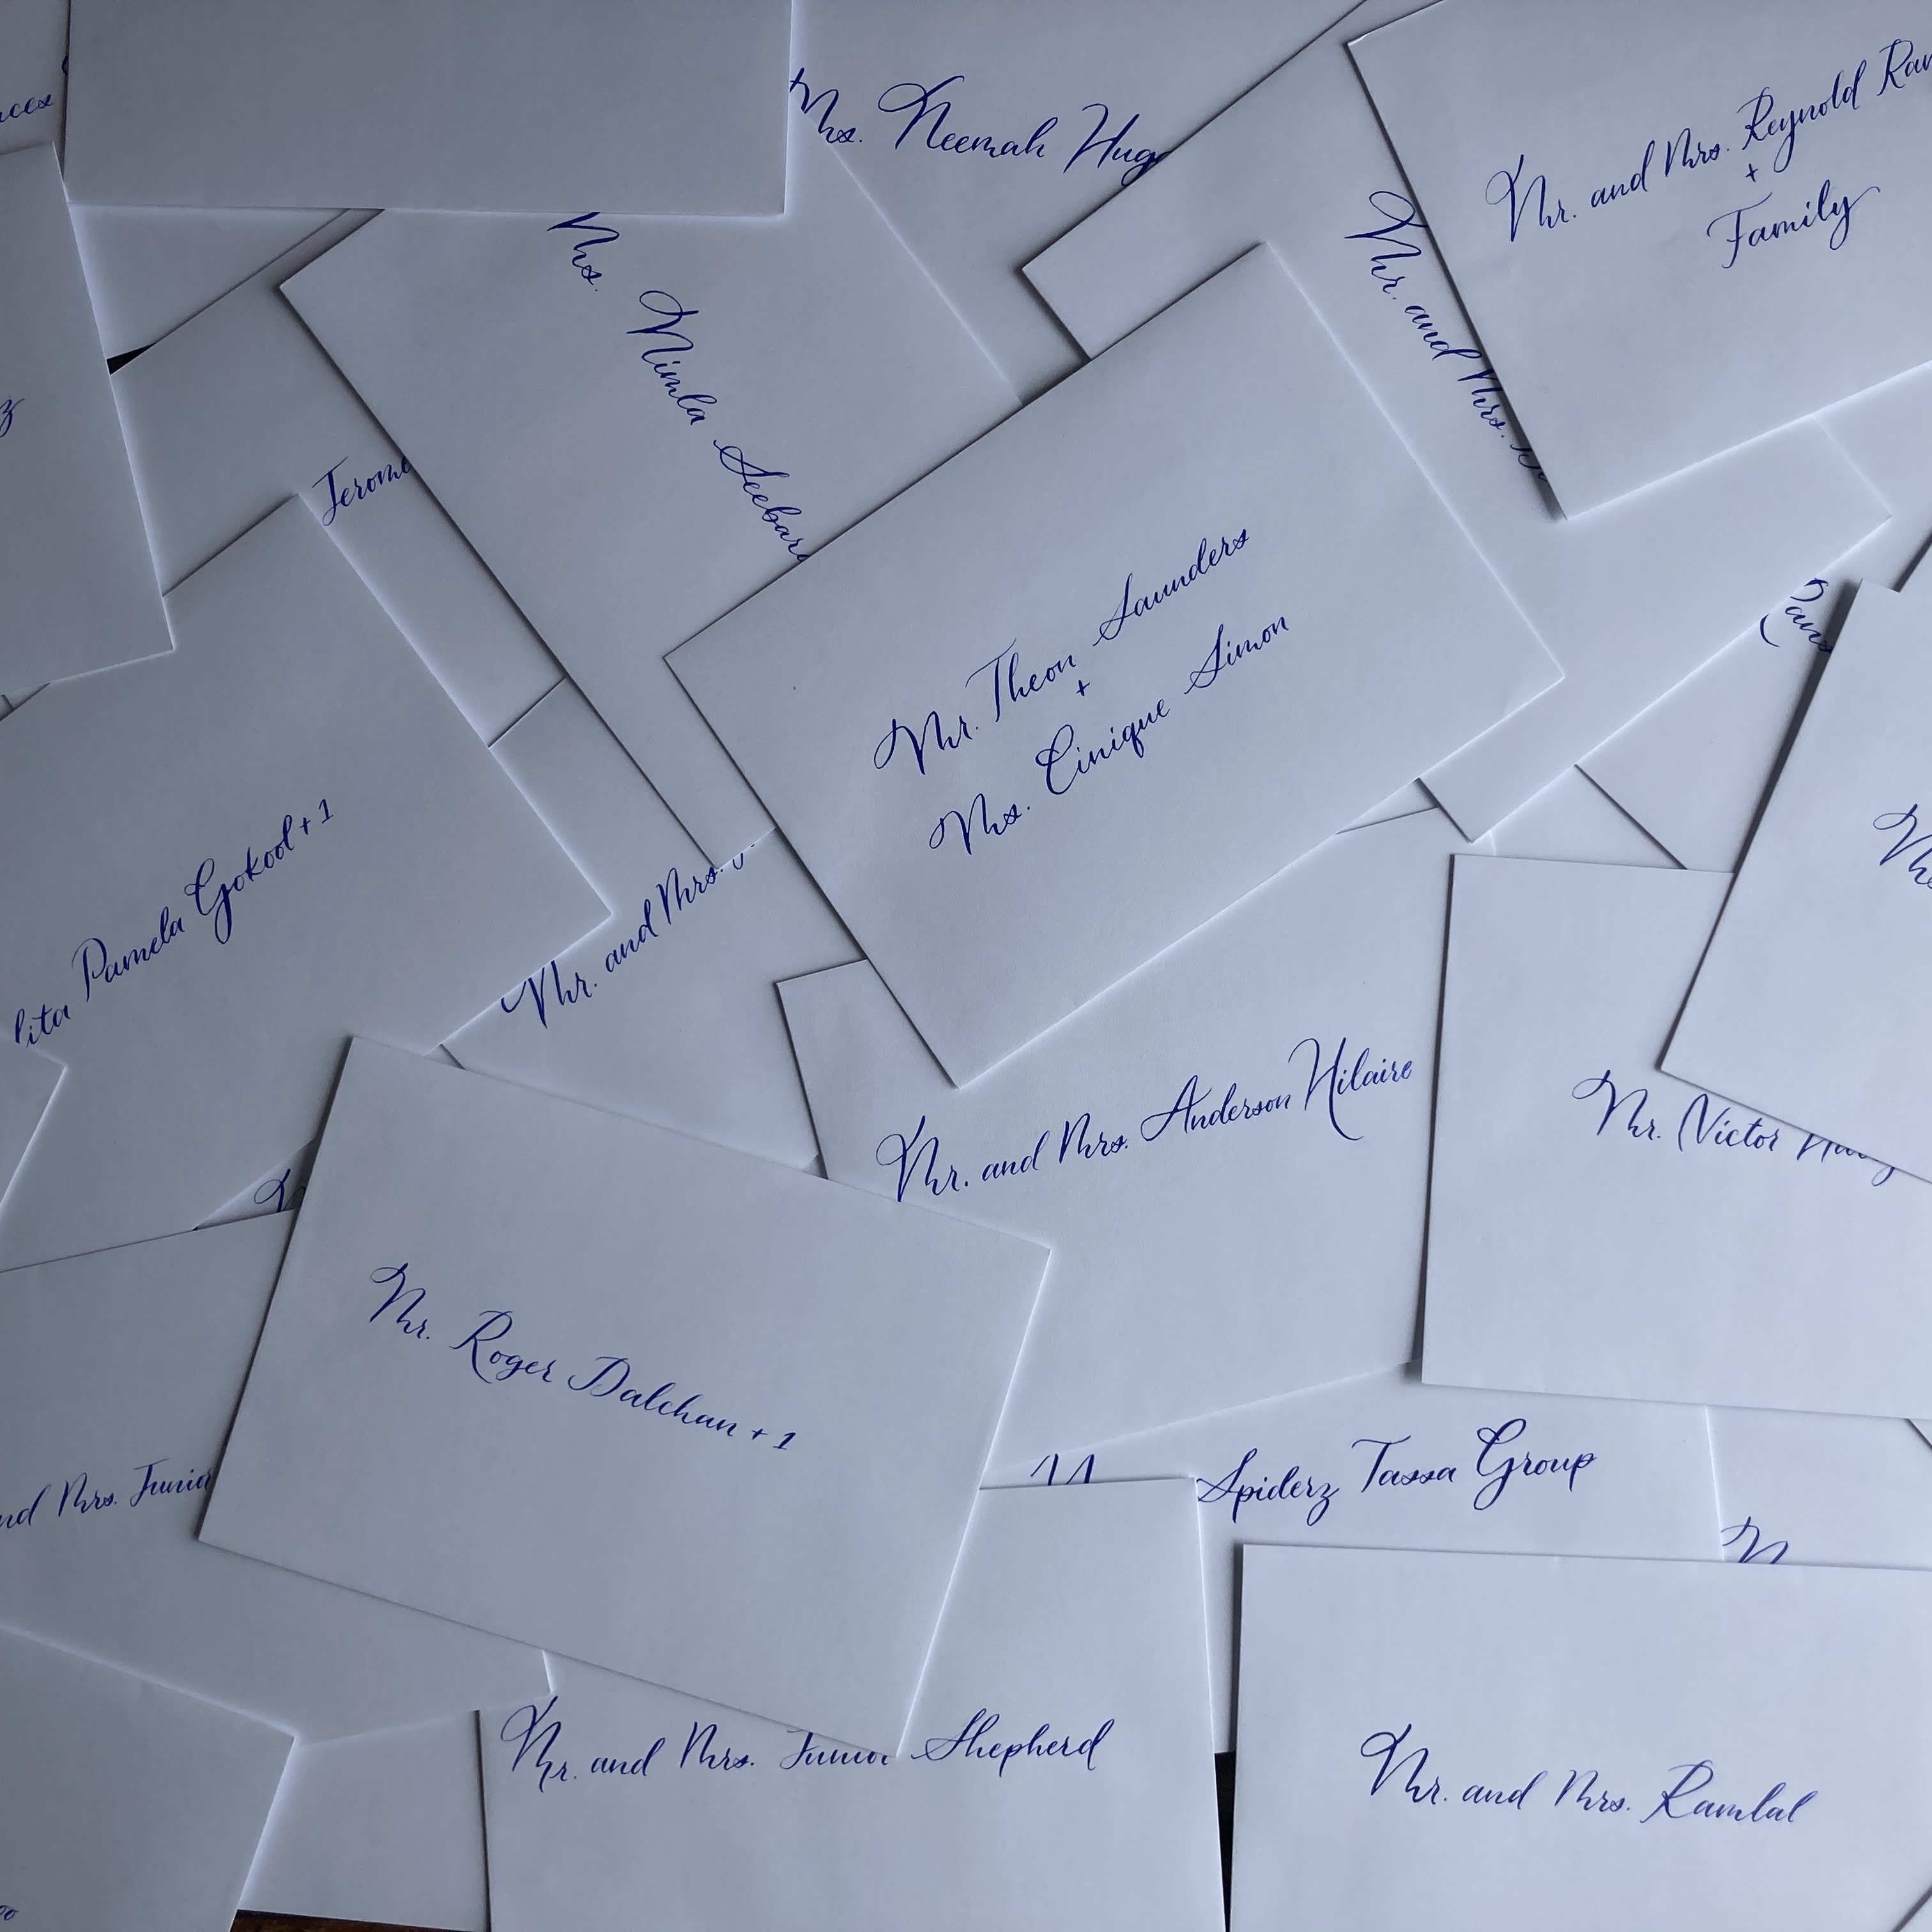 Ms. Neemah
Mr. and Mrs. Reynold
+
Family
Ms. Nimla
Mr. and Mrs.
Mr. Theon Saunders
+
Ms. Cinique Simon
Pamela Gokool + 1
Mr. and Mrs.
Mr. and Mrs. Anderson Hilaire
Mr. Victor
Mr. Roger Dalchan + 1
Mrs. Junior
Spiderz Tassa Group
Mr. and Mrs. Junior Shepherd
Mr. and Mrs. Ramlal